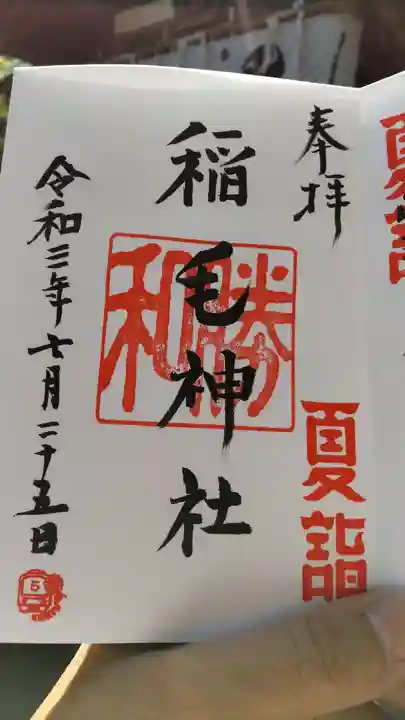 夏詣
奉拝
夏詣
稲毛神社
勝和
令和三年七月二十五日
5